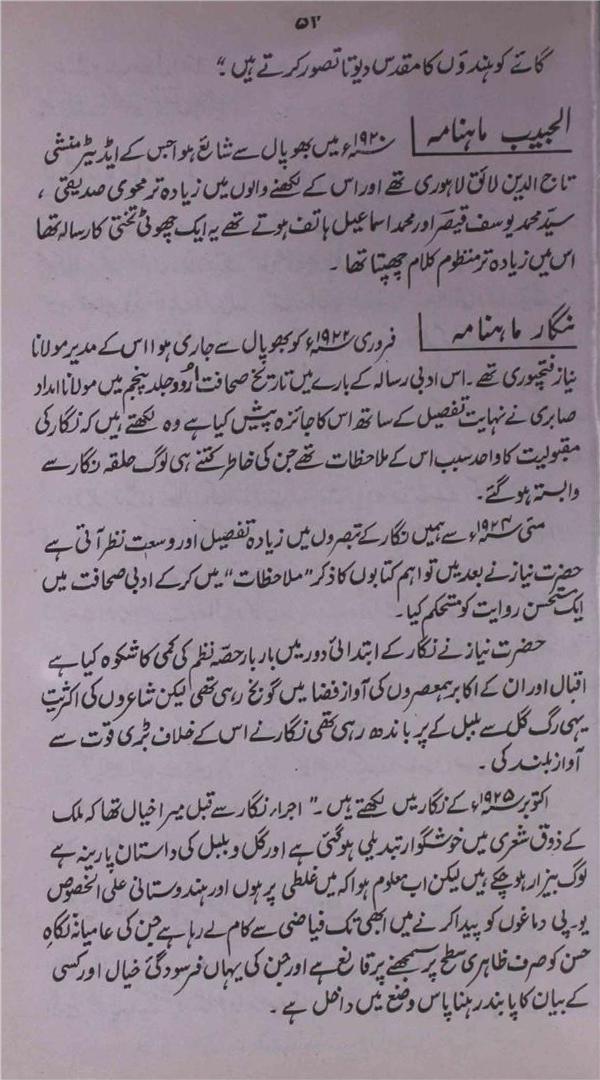 ۵۲
گائے کو ہندؤں کا مقدس دیوتا تصور کرتے ہیں۔"
الحبیب ماہنامہ ۱۹۲۰ء میں بھوپال سے شائع ہوا جس کے ایڈیٹر منشی
تاج الدین لائق لاہوری تھے اور اس کے لکھنے والوں میں زیادہ تر محوی صدیقی ،
سید محمد یوسف قیصر اور محمد اسماعیل ہاتف ہوتے تھے یہ ایک چھوٹی تختی کا رسالہ تھا
اس میں زیادہ تر منظوم کلام چھپتا تھا ۔
نگار ماہنامہ فروری ۱۹۲۲ء کو بھوپال سے جاری ہوا اس کے مدیر مولانا
نیاز فتحپوری تھے۔ اس ادبی رسالہ کے بارے میں تاریخ صحافت اُردو جلد پنجم میں مولانا امداد
صابری نے نہایت تفصیل کے ساتھ اس کا جائزہ پیش کیا ہے وہ لکھتے ہیں کہ نگار کی
مقبولیت کا واحد سبب اس کے ملاحظات تھے جن کی خاطر کتنے ہی لوگ حلقہ نگار سے
وابستہ ہو گئے۔
مئی ۱۹۲۴ء سے ہمیں نگار کے تبصروں میں زیادہ تفصیل اور وسعت نظر آتی ہے
حضرت نیاز نے بعد میں تو اہم کتابوں کا ذکر "ملاحظات" میں کر کے ادبی صحافت میں
ایک مستحسن روایت کو مستحکم کیا۔
حضرت نیاز نے نگار کے ابتدائی دور میں بار بار حصّہ نظم کی کمی کا شکوہ کیا ہے
اقبال اور ان کے اکابر ہمعصروں کی آواز فضا میں گونج رہی تھی لیکن شاعروں کی اکثریت
یہی رگ گل سے بلبل کے پر باندھ رہی تھی نگار نے اس کے خلاف بڑی قوت سے
آواز بلند کی ۔
اکتوبر ۱۹۲۵ء کے نگار میں لکھتے ہیں ۔" اجراء نگار سے قبل میرا خیال تھا کہ ملک
کے ذوق شعری میں خوشگوار تبدیلی ہو گئی ہے اور گل و بلبل کی داستان پارینہ ہے
لوگ بیزار ہو چکے ہیں لیکن اب معلوم ہوا کہ میں غلطی پر ہوں اور ہندوستانی علی الخصوص
یو۔پی دماغوں کو پیدا کرنے میں ابھی تک فیاضی سے کام لے رہا ہے جن کی عامیانہ نگاہِ
حسن کو صرف ظاہری سطح پر سمجھنے پر قانع ہے اور جن کی یہاں فرسودگئ خیال اور کسی
کے بیان کا پابند رہنا پاس وضع میں داخل ہے ۔